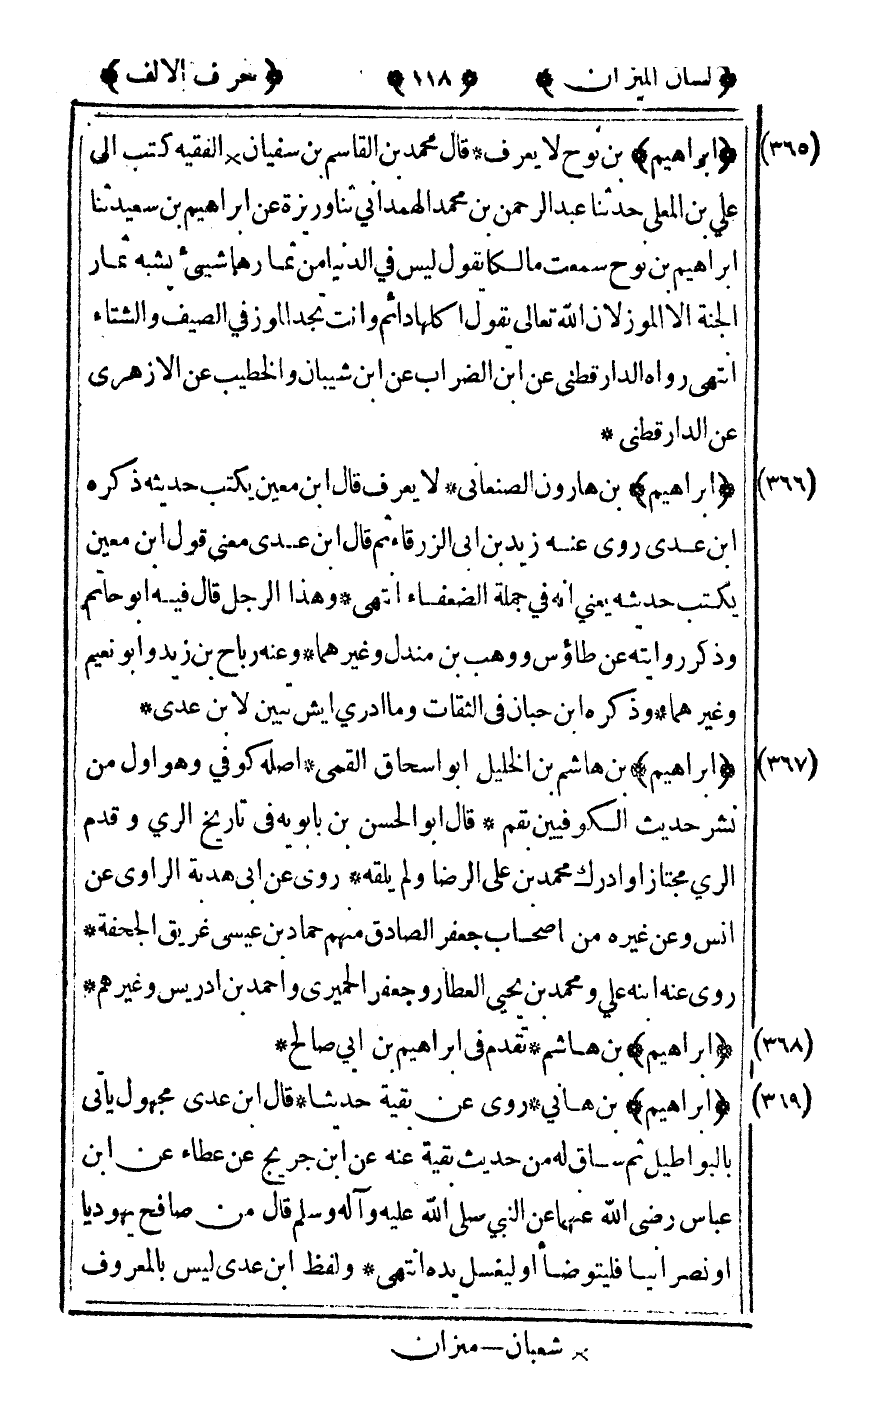 ﴿لسان الميزان﴾ ﴿١١٨﴾ ﴿حرف الالف﴾
(٣٦٥) ﴿ابراهيم﴾ بن نوح لا يعرف * قال محمد بن القاسم بن سفيان × الفقيه كتب الى
علي بن المعلى حدثنا عبد الرحمن بن محمد الهمداني ثنا وريزة عن ابراهيم بن سعيد ثنا
ابراهيم بن نوح سمعت مالكا يقول ليس في الدنيا من ثمارها شيئ يشبه ثمار
الجنة الا الموز لان الله تعالى يقول اكلها دائم وانت تجد الموز في الصيف والشتاء
انتهى رواه الدارقطنى عن ابن الضراب عن ابن شيبان والخطيب عن الازهرى
عن الدارقطنى *
(٣٦٦) ﴿ابراهيم﴾ بن هارون الصنعانى * لا يعرف قال ابن معين يكتب حديثه ذكره
ابن عدى روى عنه زيد بن ابى الزرقاء ثم قال ابن عدى معنى قول ابن معين
يكتب حديثه يعني انه في جملة الضعفاء انتهى * وهذا الرجل قال فيه ابو حاتم
وذكر روايته عن طاؤس ووهب بن مندل وغيرهما * وعنه رباح بن زيد وابو نعيم
وغيرهما * وذكره ابن حبان فى الثقات وما ادري ايش تبين لابن عدى *
(٣٦٧) ﴿ابراهيم﴾ بن هاشم بن الخليل ابو اسحاق القمى * اصله كوفي وهو اول من
نشر حديث الكوفيين بقم * قال ابو الحسن بن بابويه فى تاريخ الري و قدم
الري مجتازا وادرك محمد بن على الرضا ولم يلقه * روى عن ابى هدبة الراوى عن
انس وعن غيره من اصحاب جعفر الصادق منهم حماد بن عيسى غريق الجحفة *
روى عنه ابنه علي و محمد بن يحيى العطار و جعفر الحميرى و احمد بن ادريس وغيرهم *
(٣٦٨) ﴿ابراهيم﴾ بن هاشم * تقدم فى ابراهيم بن ابي صالح *
(٣٦٩) ﴿ابراهيم﴾ بن هاني * روى عن بقية حديثا * قال ابن عدى مجهول يأتى
بالبواطيل ثم ساق له من حديث بقية عنه عن ابن جريج عن عطاء عن ابن
عباس رضى الله عنهما عن النبي صلى الله عليه وآله وسلم قال من صافح يهوديا
او نصرانيا فليتوضأ او ليغسل يده انتهى * ولفظ ابن عدى ليس بالمعروف
× شعبان — ميزان